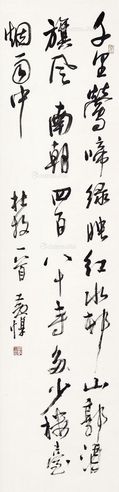 千里鶯啼綠映紅水邨山郭酒
旗風南朝四百八十寺多少樓臺
烟雨中 杜牧一首 黃惇